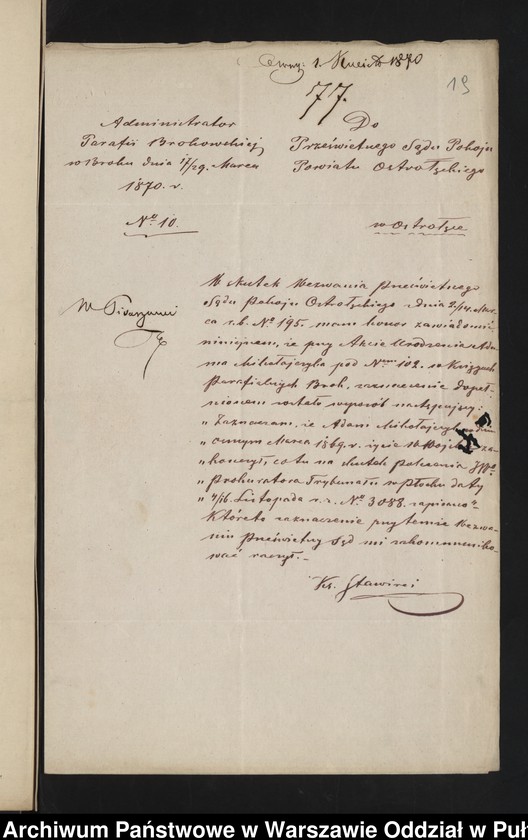 1. Kwietn 1870
19
77.
Administrator
Parafii Brokowskiej
w Broku dnia 17/29. Marca
1870. r.
N° 10.
Do
Prześwietnego Sądu Pokoju
Powiatu Ostrołęckiego
w Ostrołęce
W skutek Wezwania Prześwietnego
Sądu Pokoju Ostrołęckiego z dnia 2/14. Mar-
ca r.b. N° 195. mam honor zawiadomić
niniejszem, że przy Akcie Urodzenia Ada-
ma Mikołajczyka pod Nrem 102. w Księgach
Parafialnych Brok, zaznaczenie dopeł-
nionem zostało w sposób następujący:
„ Zaznaczam, że Adam Mikołajczyk
„ Marca 1869. r. życie w Wojsku za-
„ kończył, co tu na skutek polecenia JWo
„ Prokuratora Trybunału w Płocku daty
„ 4/16. Listopada r. z. N° 3088. zapisano"
Któreto zaznaczenie przytemże Wezwa-
niu Prześwietny Sąd mi zakommuniko-
wać raczył.-
Ks. Sławiński
Archiwum Państwowe w Warszawie Oddział w Puł